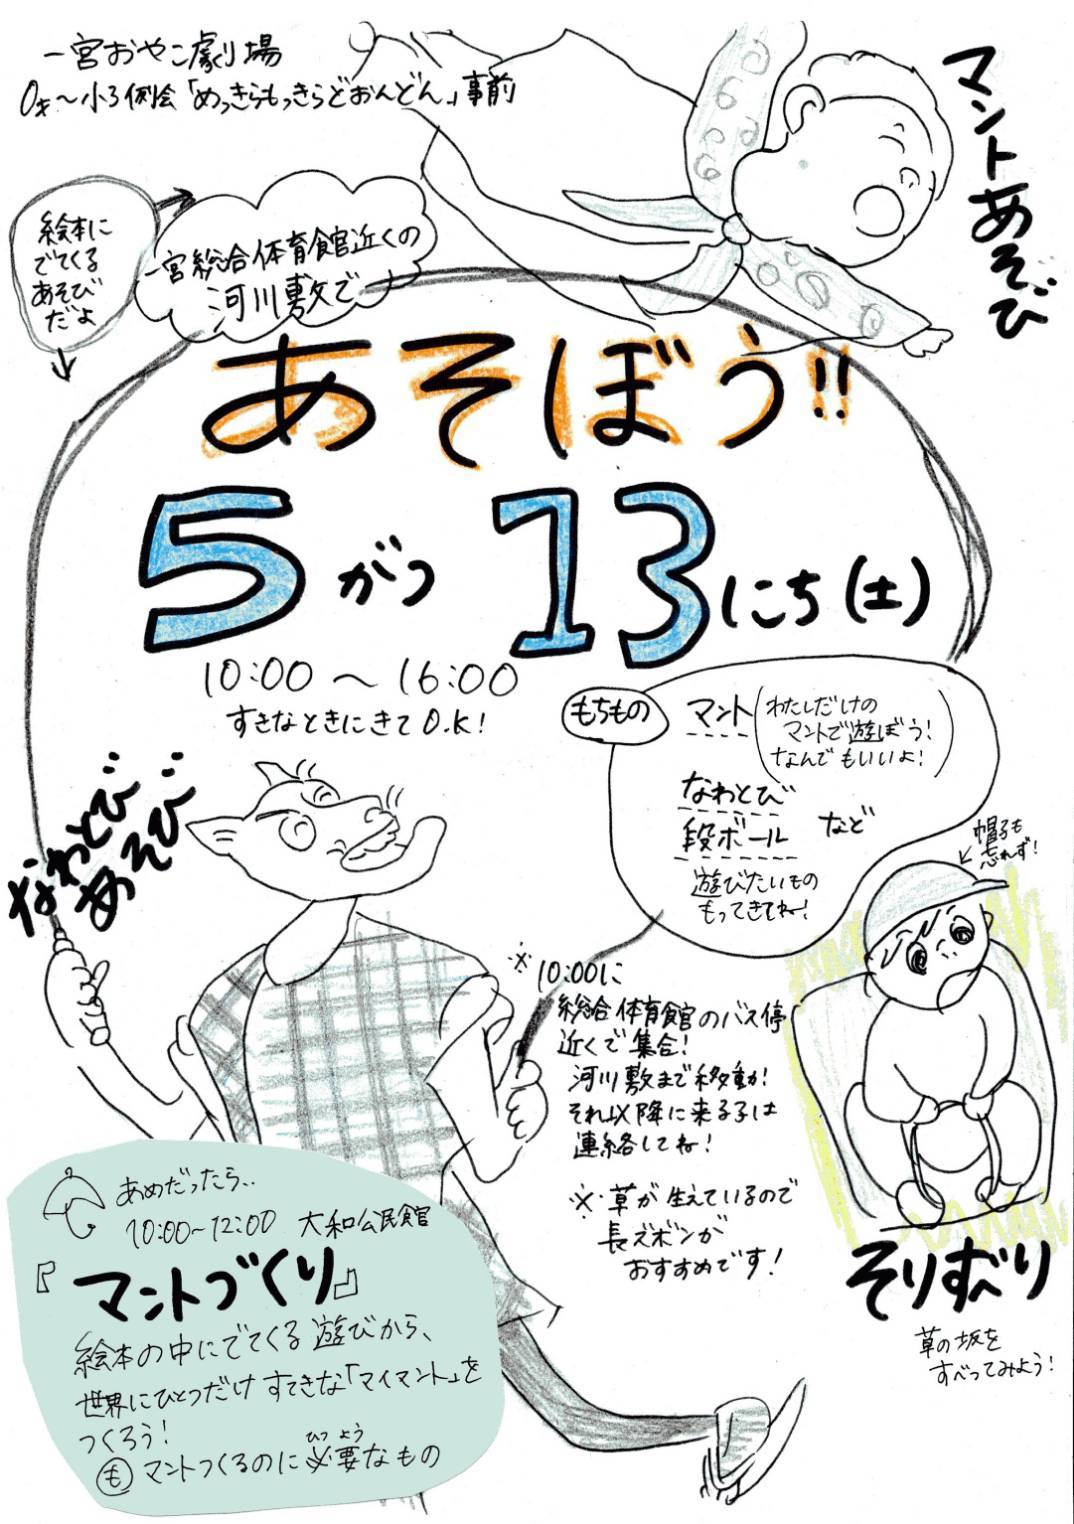 一宮おやこ劇場
0才〜小3例会「めっきらもっきらどおんどん」事前
マントあそび
絵本に
でてくる
あそび
だよ
一宮総合体育館近くの
河川敷で
あそぼう!!
5がつ 13にち(土)
10:00〜16:00
すきなときにきてO.K!
もちもの
マント(わたしだけの
マントで遊ぼう!
なんでもいいよ!)
なわとび
段ボール など
遊びたいもの
もってきてね!
帽子も
忘れず!
なわとび
あそび
※10:00に
総合体育館のバス停
近くで集合!
河川敷まで移動!
それ以降に来る子は
連絡してね!
※草が生えているので
長ズボンが
おすすめです!
そりすべり
草の坂を
すべってみよう!
あめだったら..
10:00~12:00 大和公民館
『マントづくり』
絵本の中にでてくる遊びから、
世界にひとつだけすてきな「マイマント」を
つくろう!
ひつよう
も マントつくるのに必要なもの